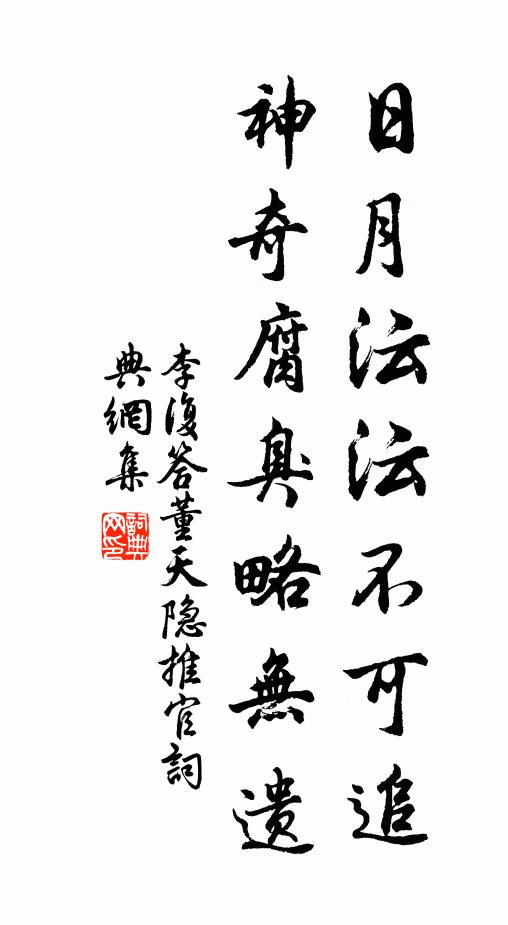 日月沄沄不可追
神奇腐臭略無遺
李復答董天隐推官詞
典網集
詞典網印